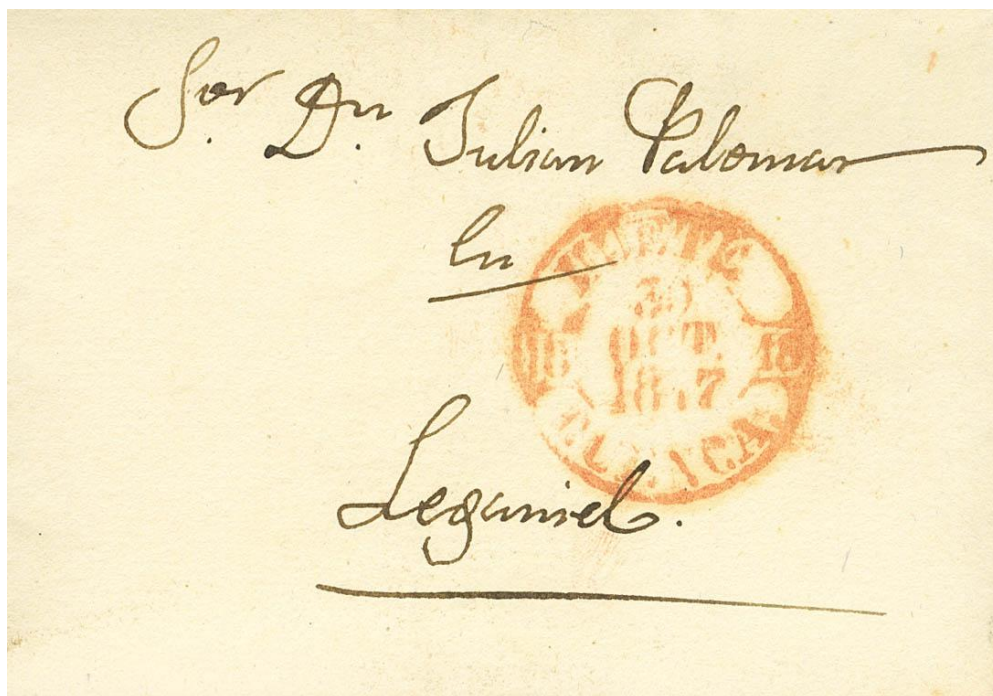 Sor. Dn. Julian Palomar
En
HUETE
30
OCT.
CUENCA.
Leganiel.